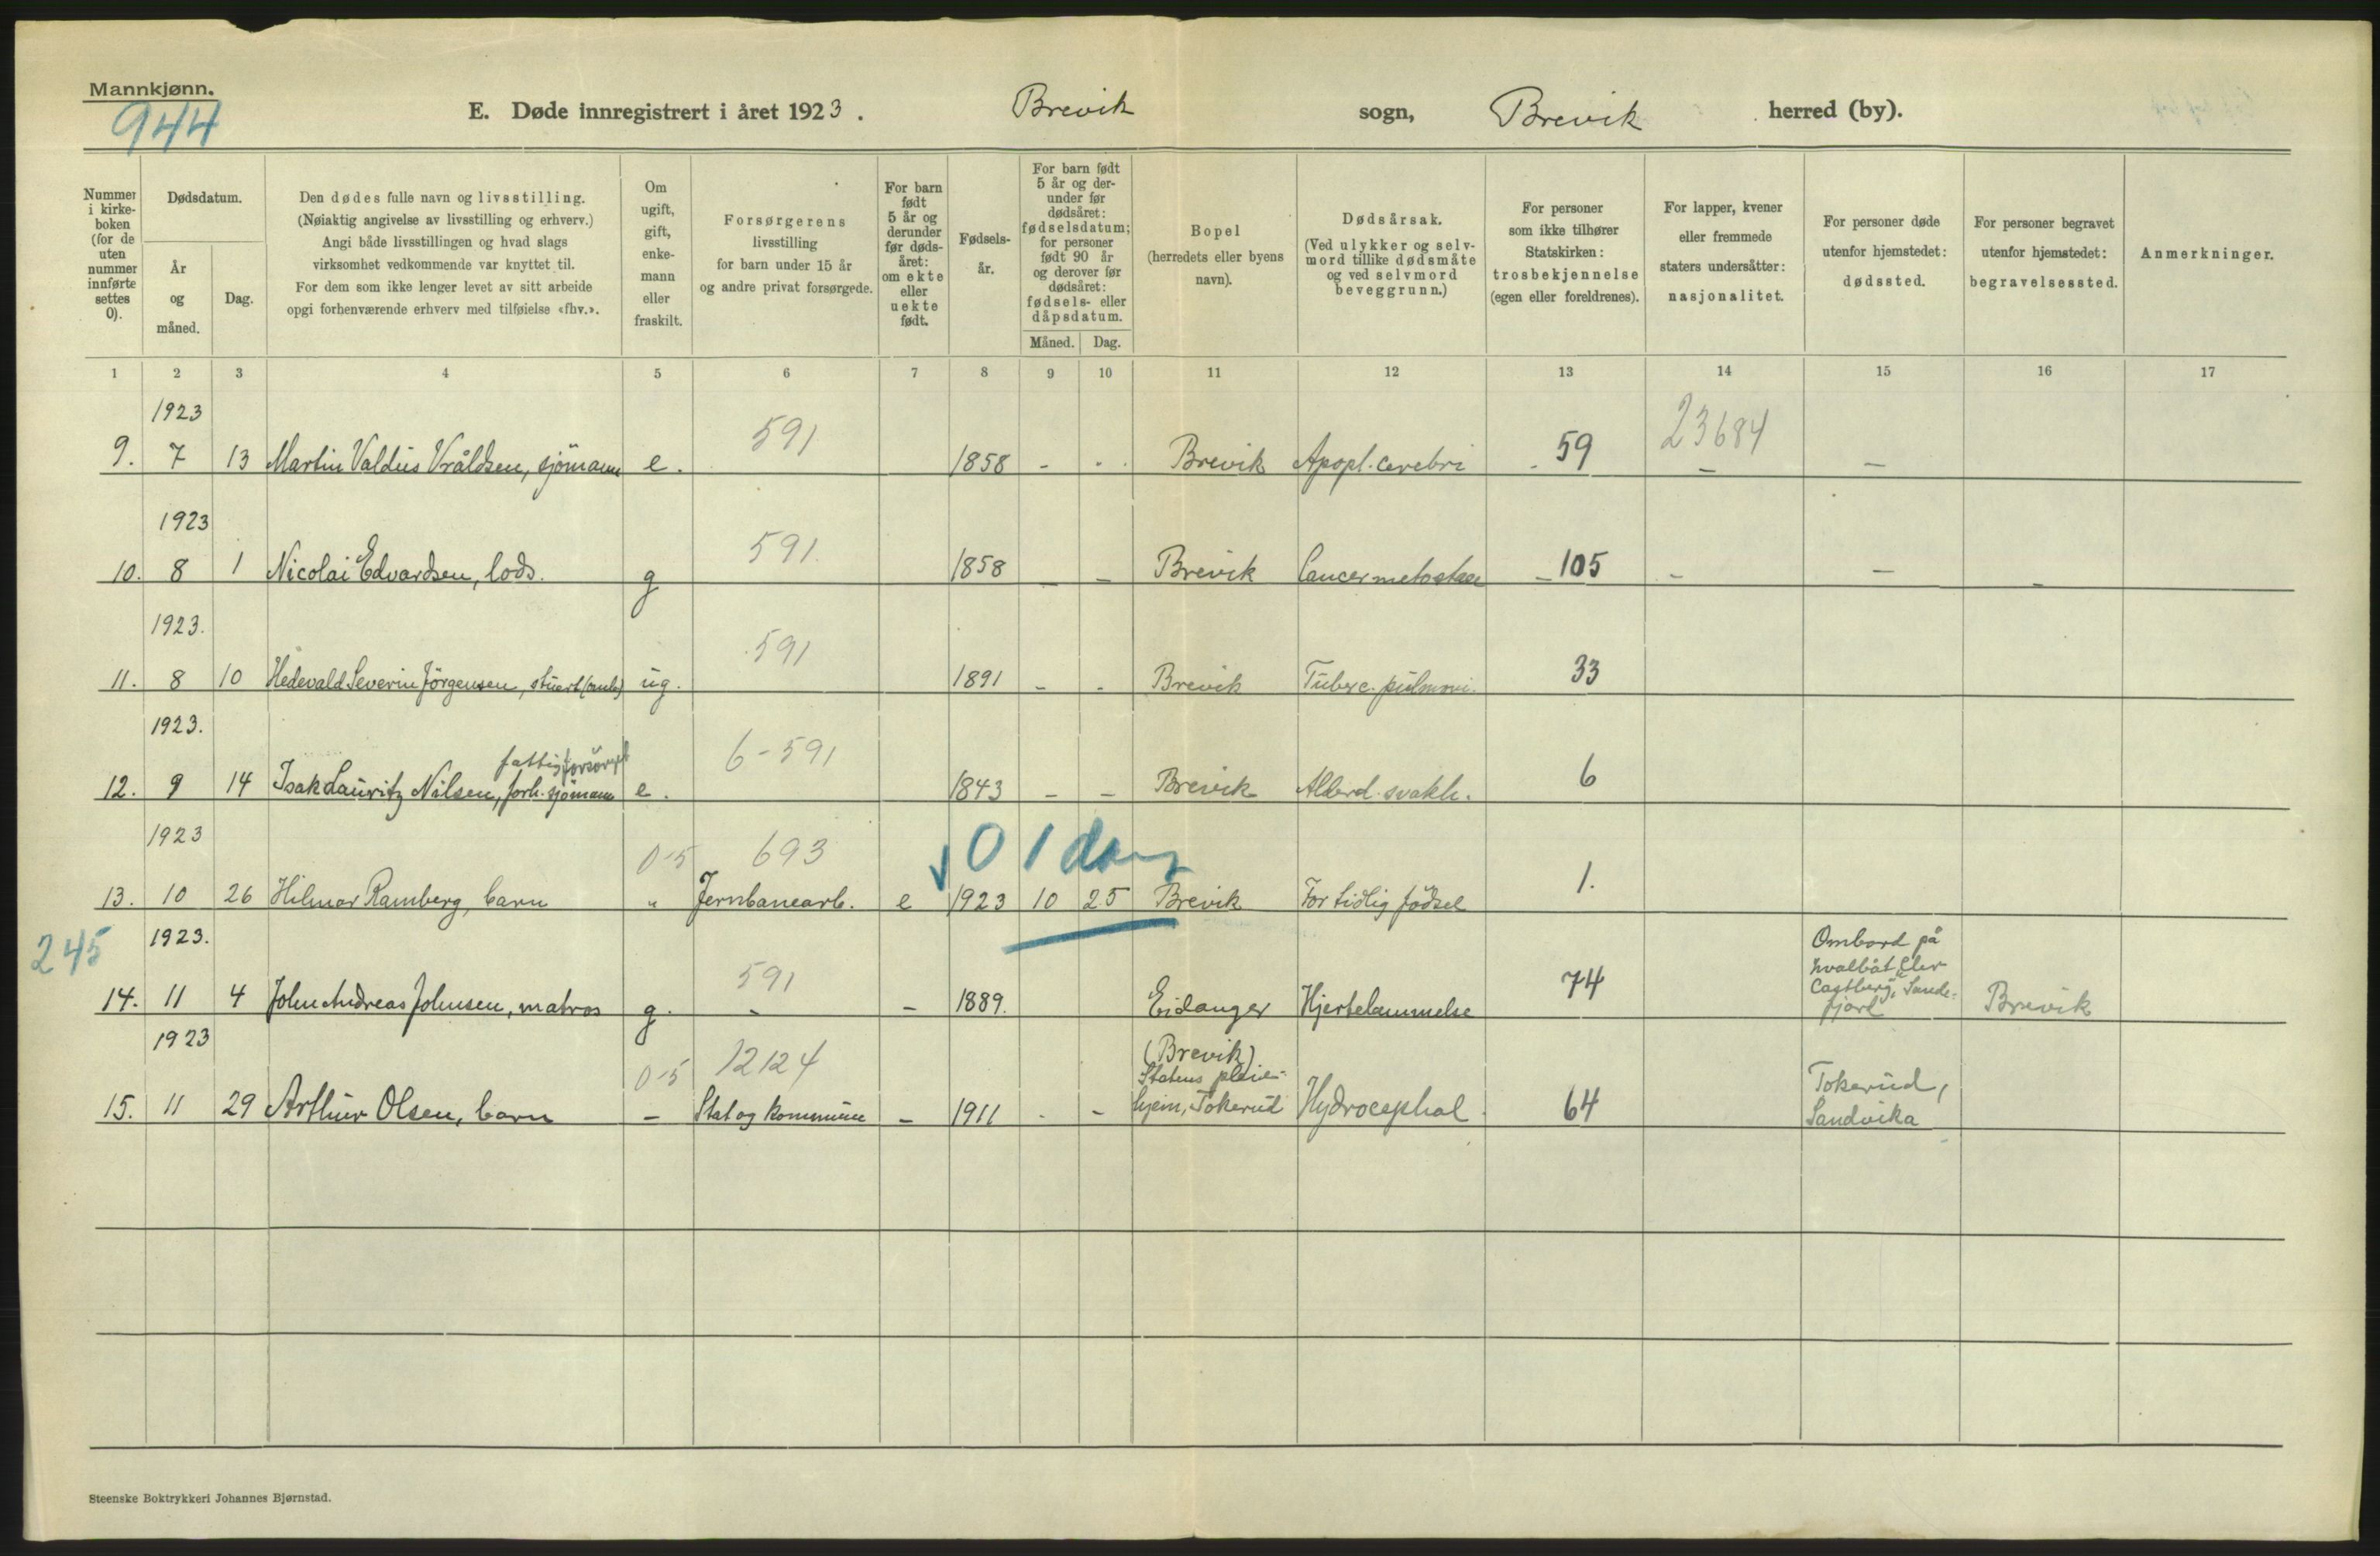 Mannkjønn.
944
E. Døde innregistrert i året 1923. Brevik sogn, Brevik herred (by).
Nummer i kirke-boken (for de uten nummer innførte settes 0).
Dødsdatum.
År og måned.
Dag.
Den dødes fulle navn og livsstilling.
(Nøiaktig angivelse av livsstilling og erhverv.)
Angi både livsstillingen og hvad slags
virksomhet vedkommende var knyttet til.
For dem som ikke lenger levet av sitt arbeide
opgi forhenværende erhverv med tilføielse «fhv.».
Om ugift, gift, enke-mann eller fraskilt.
Forsørgerens livsstilling for barn under 15 år og andre privat forsørgede.
For barn født 5 år og derunder før døds-året: om ekte eller uekte født.
Fødsels-år.
For barn født 5 år og der-under før dødsåret: fødselsdatum; for personer født 90 år og derover før dødsåret: fødsels- eller dåpsdatum.
Måned. Dag.
Bopel (herredets eller byens navn).
Dødsårsak. (Ved ulykker og selv-mord tillike dødsmåte og ved selvmord beveggrunn.)
For personer som ikke tilhører Statskirken: trosbekjennelse (egen eller foreldrenes).
For lapper, kvener eller fremmede staters undersåtter: nasjonalitet.
For personer døde utenfor hjemstedet: dødssted.
For personer begravet utenfor hjemstedet: begravelsessted.
Anmerkninger.
1 2 3 4 5 6 7 8 9 10 11 12 13 14 15 16 17
1923 591 23684
9. 7 13 Martin Valdus Vråldsen, sjömann e. 1858 - - Brevik Apopl. cerebri - 59 - -
1923 591
10. 8 1 Nicolai Edvardsen, lods. g 1858 - - Brevik Cancer metastase - 105 - - -
1923. 591
11. 8 10 Hedevald Severin Jörgensen, stuert ug. 1891 - - Brevik Tuberc. pulmoni. 33
1923. fattigforsörget 6-591
12. 9 14 Isak Lauritz Nilsen, forh. sjömann e. 1843 - - Brevik Alderd. svakh. 6
1923 0-5 693 0 1 dag
13. 10 26 Hilmar Ramberg, barn " Jernbanearb. e 1923 10 25 Brevik For tidlig födsel 1.
245 1923. 591 Ombord på
hvalbåt
Castberg, Sande-
14. 11 4 John Andreas Johnsen, matros g. - - 1889. Eidanger Hjertelammelse 74 fjord Brevik
1923 0-5 12124 (Brevik)
Statens pleie- Tokerud,
15. 11 29 Arthur Olsen, barn - Stat og kommune - 1911 - - hjem, Tokerud Hydrocephal. 64 Sandvika
Steenske Boktrykkeri Johannes Bjørnstad.